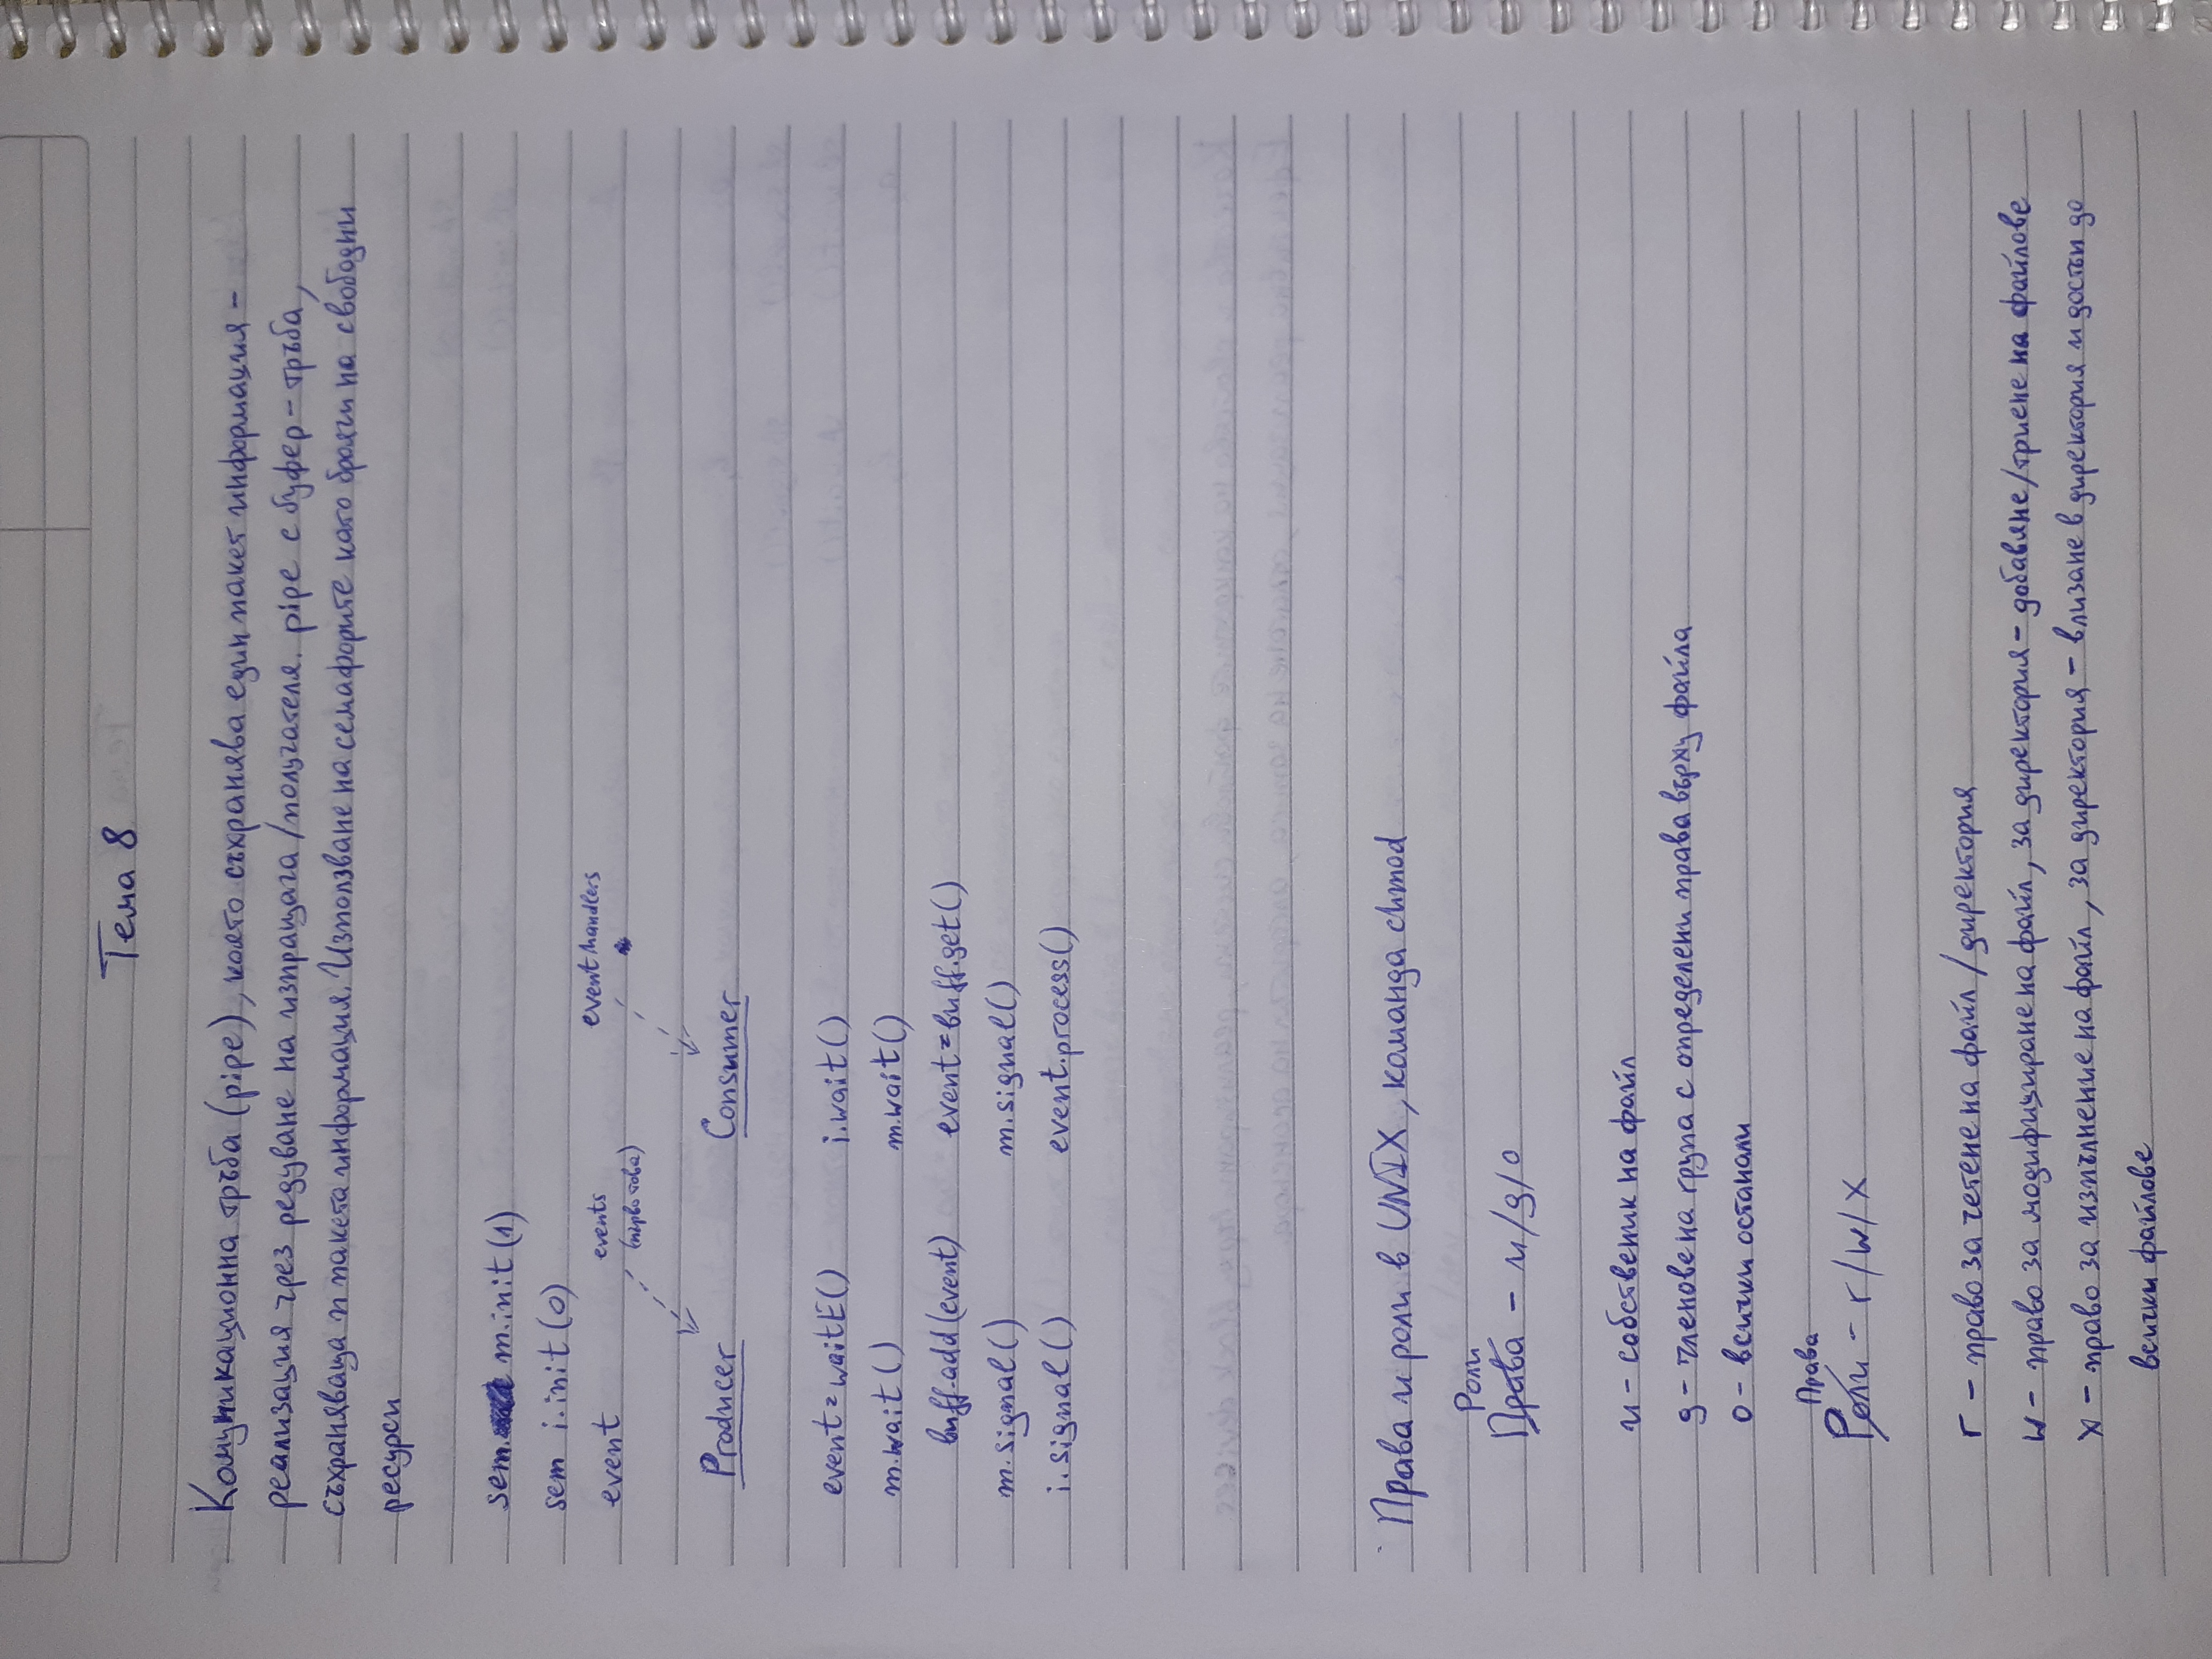 Тема 8
Комуникационна тръба (pipe), която съхранява един пакет информация –
реализация чрез редуване на изпращача/получателя. pipe с буфер – тръба,
съхраняваща n пакета информация. Използване на семафорите като броячи на свободни
ресурси
sem m.init(1)
sem i.init(0)
event
events
(първо това)
event handlers
Producer Consumer
event=waitE() i.wait()
m.wait() m.wait()
buff.add(event) event=buff.get()
m.signal() m.signal()
i.signal() event.process()
Права и роли в UNIX, команда chmod
Роли
Права – u/g/o
u – собственик на файл
g – членове на група с определени права върху файла
o – всички останали
Права
Роли – r/w/x
r – право за четене на файл/директория
w – право за модифициране на файл, за директория – добавяне/триене на файлове
x – право за изпълнение на файл, за директория – влизане в директория и достъп до
всички файлове